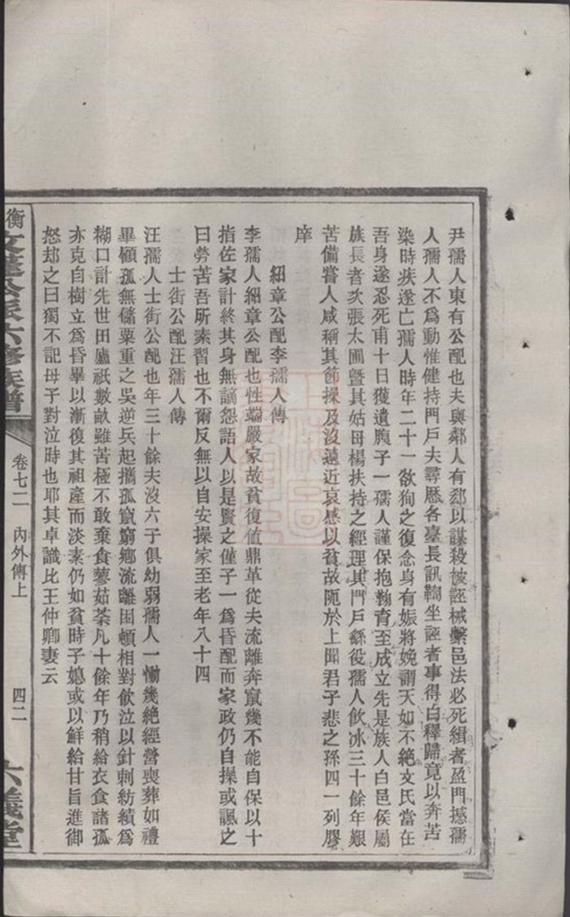 尹孺人東有公配也夫與鄰人有郄以謀殺被誣械繫邑法必死緝者盈門撼孺
人孺人不為動惟健持門戶夫尋歷各臺長訊鞫坐誣者事得白釋歸竟以奔苦
染時疾遂亡孺人時年二十一欲狥之復念身有娠將娩謂天如不絕文氏當在
吾身遂忍死甫十日獲遺腹子一孺人謹保抱鞠育至成立先是族人白邑侯屬
族長者次張太圃暨其姑母楊扶持之經理其門戶繇役孺人飲冰三十餘年艱
苦備嘗人咸稱其節操及沒遠近哀感以貧故陋於上聞君子悲之孫四一列膠
庠
紹章公配李孺人傳
李孺人紹章公配也性端嚴家故貧復值鼎革從夫流離奔竄幾不能自保以十
指佐家計終其身無謫怨語人以是賢之僅子一為昏配而家政仍自操或諷之
曰勞苦吾所素習也不爾反無以自安操家至老年八十四
士街公配汪孺人傳
汪孺人士街公配也年三十餘夫沒六子俱幼弱孺人一慟幾絕經營喪葬如禮
畢顧孤無儲粟重之吳逆兵起攜孤竄窮鄉流離困頓相對飲泣以針刺紡績為
糊口計先世田廬祇數畝雖苦極不敢棄食蓼茹荼凡十餘年乃稍給衣食諸孤
亦克自樹立為昏畢以漸復其祖產而淡素仍如貧時子媳或以鮮給甘旨進御
怒却之曰獨不記母子對泣時也耶其卓識比王仲卿妻云
衡 六修族譜
卷七二
內外傳上
四二
六義堂